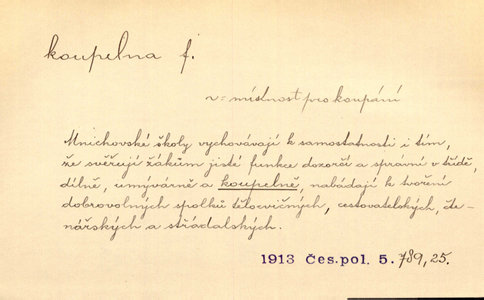 koupelna f.
v= místnost pro koupání
Mnichovské školy vychovávají k samostatnosti i tím,
že svěrují žákům jisté funkce dozorčí a správní v třídě,
dílně, umývárně a koupelně, nabádají k tvoření
dobrovolných spolků tělocvičných, cestovatelských, čte-
nářských a střádalských.
1913 Čes. pol. 5. 789, 25.